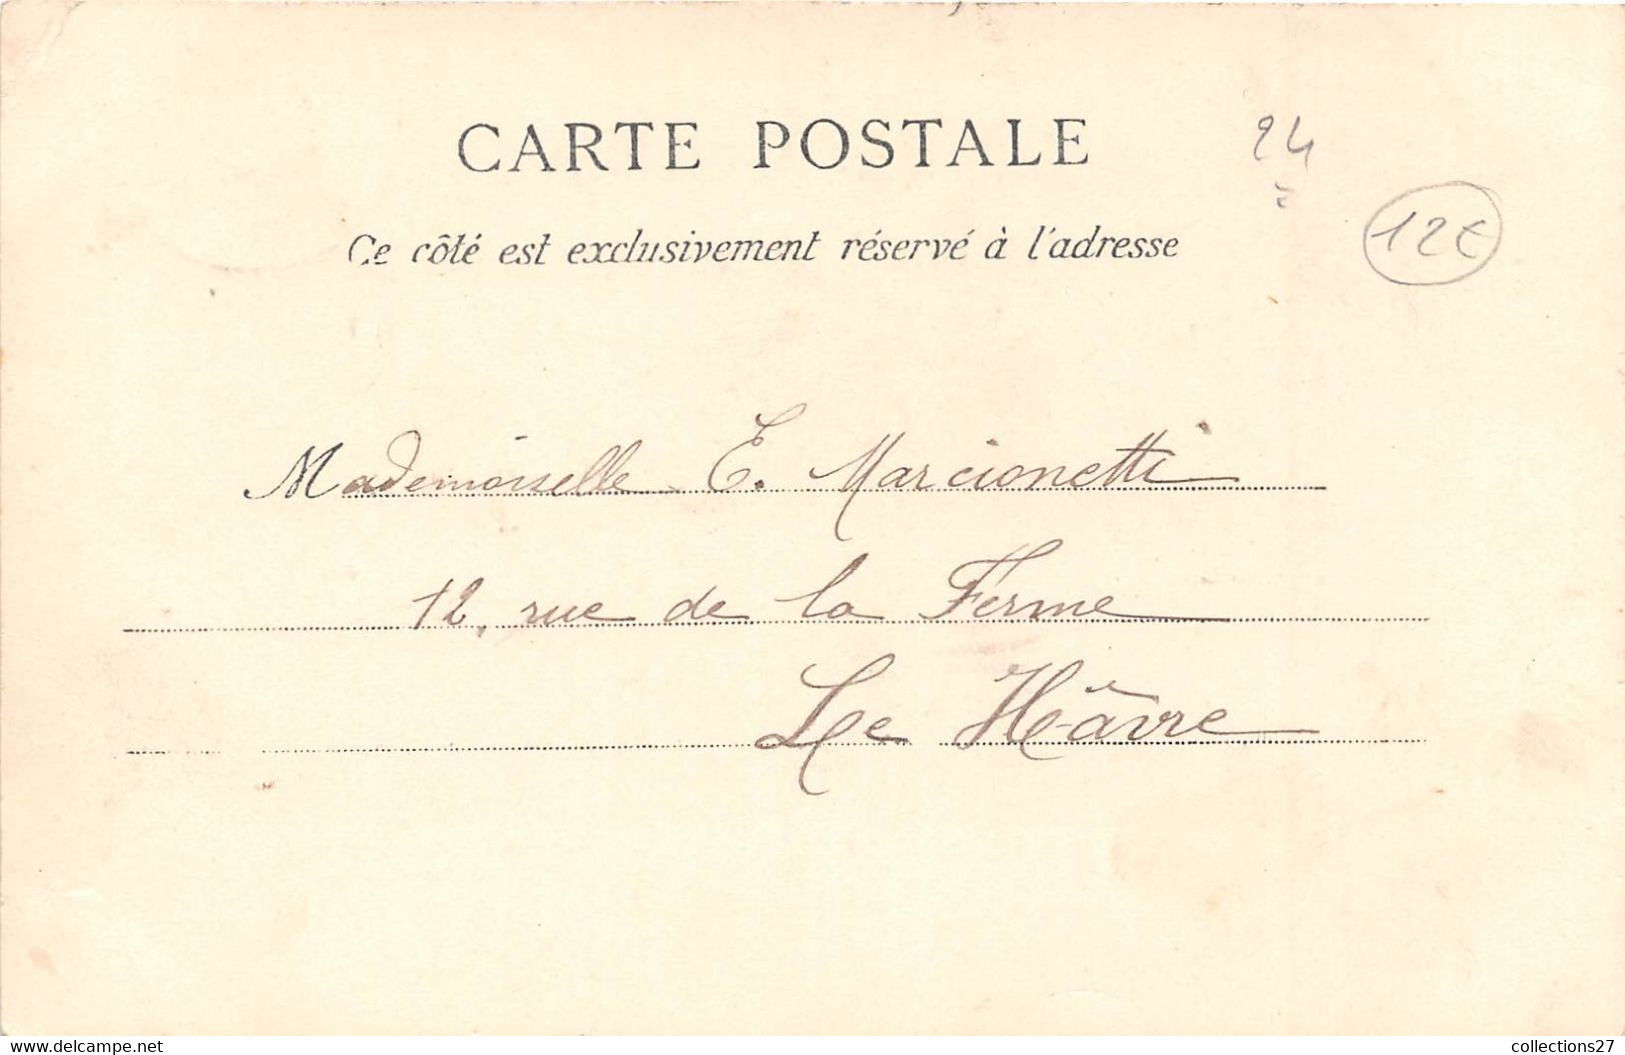 CARTE POSTALE
24
12€
Ce côté est exclusivement réservé à l'adresse
Mademoiselle E. Marcionetti
12, rue de la Ferme
Le Hâvre
www.delcampe.net
collections27